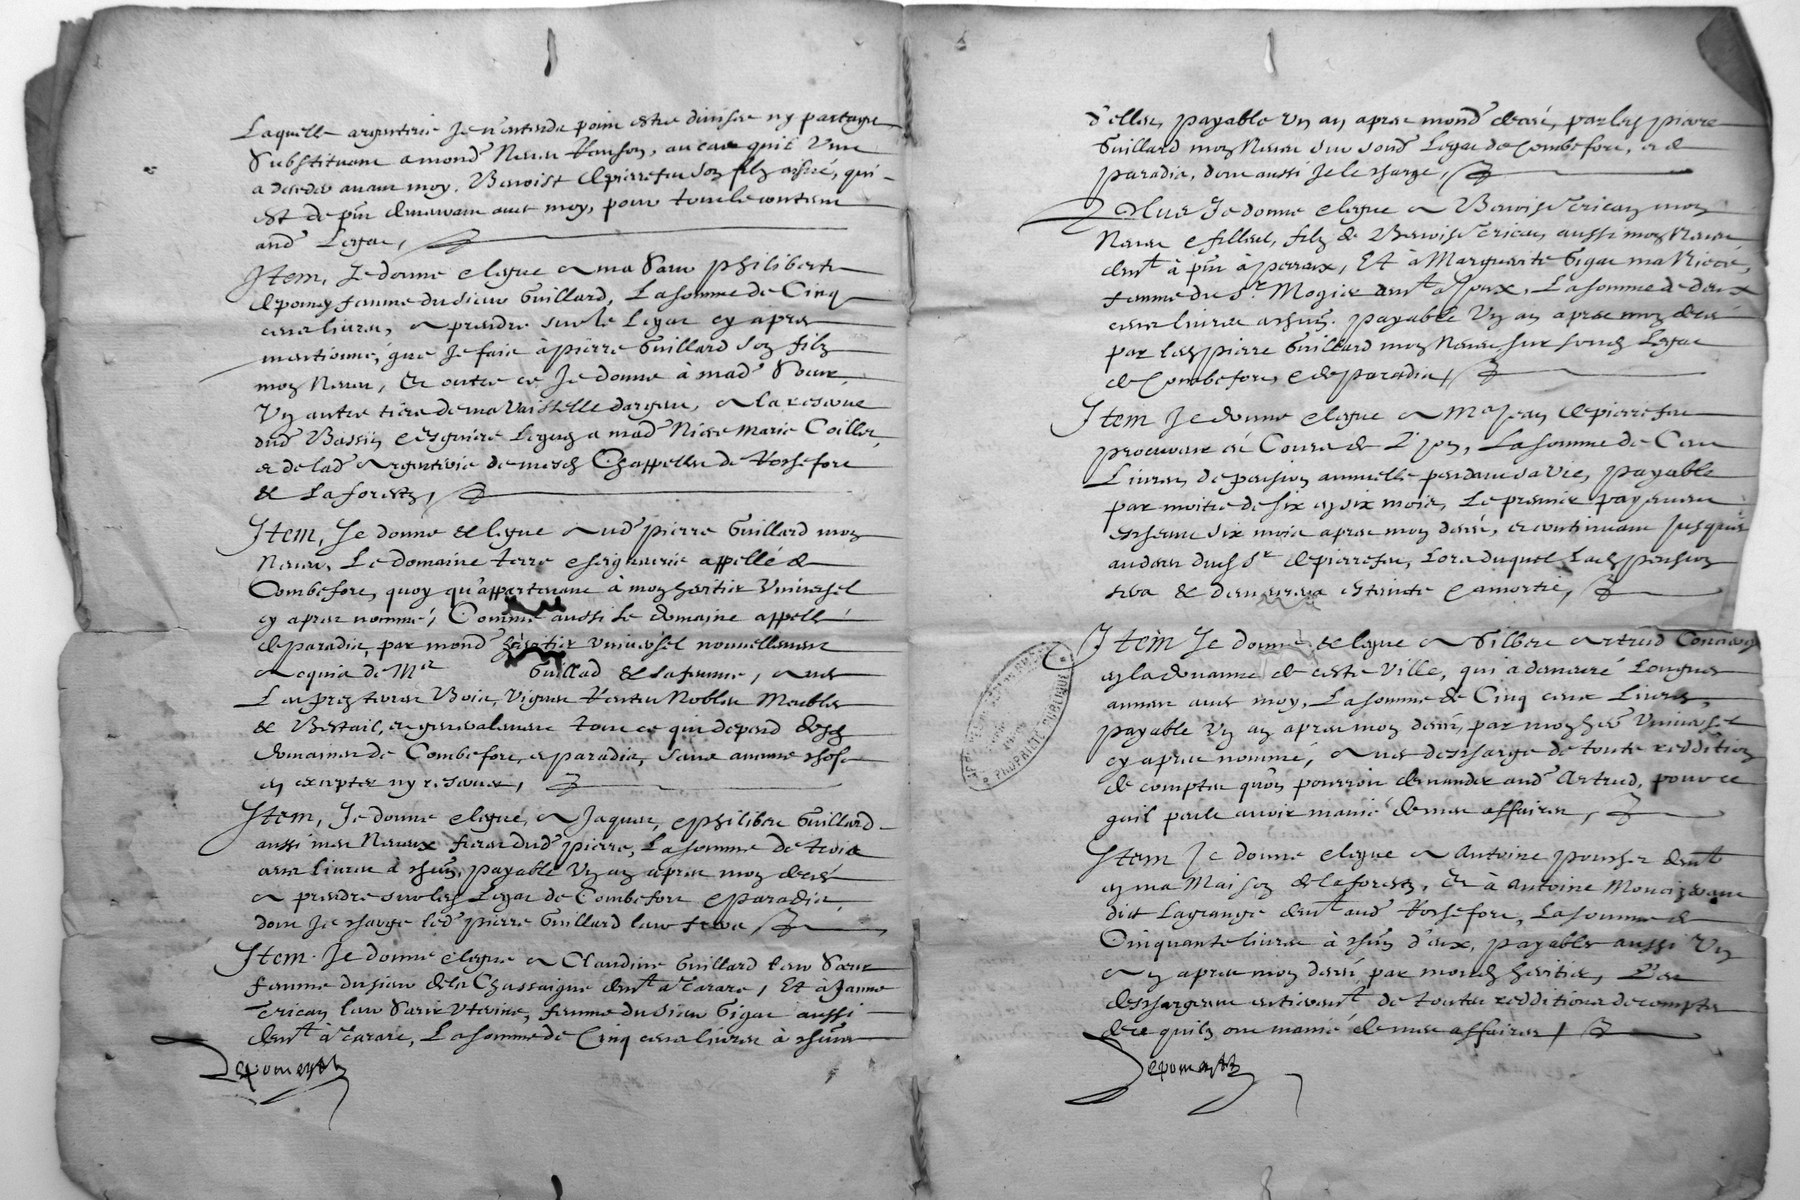 Laquelle argenterie Je n'entends point estre divisée ny partagée
Substituant a mond^t Nepveu Ranson, au cas quil vint
a deceder avant moy, Benoist Depierrefeu son filz aisné, qui
est de p^nt demeurant avec moy, pour tout le contenu
aud^t Legat,
Item, Je donne & legue a ma Sœur Philiberte
Depomey femme du sieur Guillard, La somme de Cinq
cens livres, a prendre sur le Legat cy apres
mentionné, que Je fais à pierre Guillard son filz
mon Nepveu, Et outre ce Je donne à mad^e Sœur,
Un autre tiers de ma Vaisselle dargent, a la reserve
dud^t Bassin & esguiere Leguez a mad^e Niece Marie
& de lad^e Argenterie de mesd^s Chappelles de Rochefort
& Laforestz,
Item, Je donne & legue aud^t pierre Guillard mon
Nepveu, Le domaine terre & seigneurie appellé de
Combefort, quoy qu'appartenant à mon heritier Universel
cy apres nommé, Comme aussi Le domaine appellé
de paradis, par mond^t heritier universel nouvellement
acquis de M^r Guillad & sa femme, avec
Les prez terres Bois, Vignes Rentes Nobles Meubles
& Bestail, et generalement tout ce qui depend desd^s
domaines de Combefort, et paradis, sans aucune chose
en excepter ny reserver,
Item, Je donne & legue, a Jaques, & Philibert Guillard
aussi mes Nepveux freres dud^t pierre, La somme de trois
cens livres à chún, payable Un an apres mon deces
a prendre sur lesd^s Legat de Combefort & paradis,
dont Je charge led^t pierre Guillard leur frere
Item. Je donne & legue a Claudine Guillard leur Sœur
femme du sieur de la Chassaigne dem^t à Tarare, Et à Janne
Terican leur Sœur Uterine, femme du sieur Gigat aussi
dem^t à Tarare, La somme de Cinq cens livres à chúne
Depomey
d'elles, payable Un an apres mond^t decés, par led^t pierre
Guillard mon Nepveu sur sond^t Legat de Combefort, et de
paradis, dont aussi Je le charge,
Plus Je donne & legue a Benoist Terican mon
Nepveu & filleul, filz de Benoist Terican aussi mon Nepveu
dem^t à p^nt à perreux, Et à Marguerite Gigat ma Niece,
femme du S^r Mogier dem^t a Joux, La somme de deux
cens livres a chún. payable Un an apres mon decés
par led^t pierre Guillard mon Nepveu sur sond^t Legat
de Combefort, & de paradis,
Item Je donne & legue a M^e Jean Depierrefeu
procureur és Cours de Lyon, La somme de Cent
Livres de pension annuelle pendant sa vie, payable
par moitié de six en six mois, Le premier payement
escheant six mois apres mon decés, et continuant jusques
au deces dud^t S^r Depierrefeu, Lors duquel Lad^e pension
sera & demeurera estainte & amortie,
Item Je donne & legue a Gilbert Artrud
en la douanne de ceste Ville, qui a demeuré Longues
années avec moy, La somme de Cinq cens Livres,
payable Un an apres mon decés, par mon her^r Universel
cy apres nommé, avec descharge de toute reddition
de comptes qu'on pourroit demander aud^t Artrud, pour ce
quil peult avoir manié de mes affaires,
Item Je donne & legue a Antoine dem^t
en ma Maison de Laforestz, Et à Antoine
dict Lagrange dem^t aud^t Rochefort, La somme de
Cinquante livres à chún d'eux, payable aussi Un
an apres mon decés par mond^t heritier, Les
deschargeant entierem^t de toutes redditions de comptes
de ce quilz ont manié de mes affaires,
Depomey
PROPRIETE PUBLIQUE